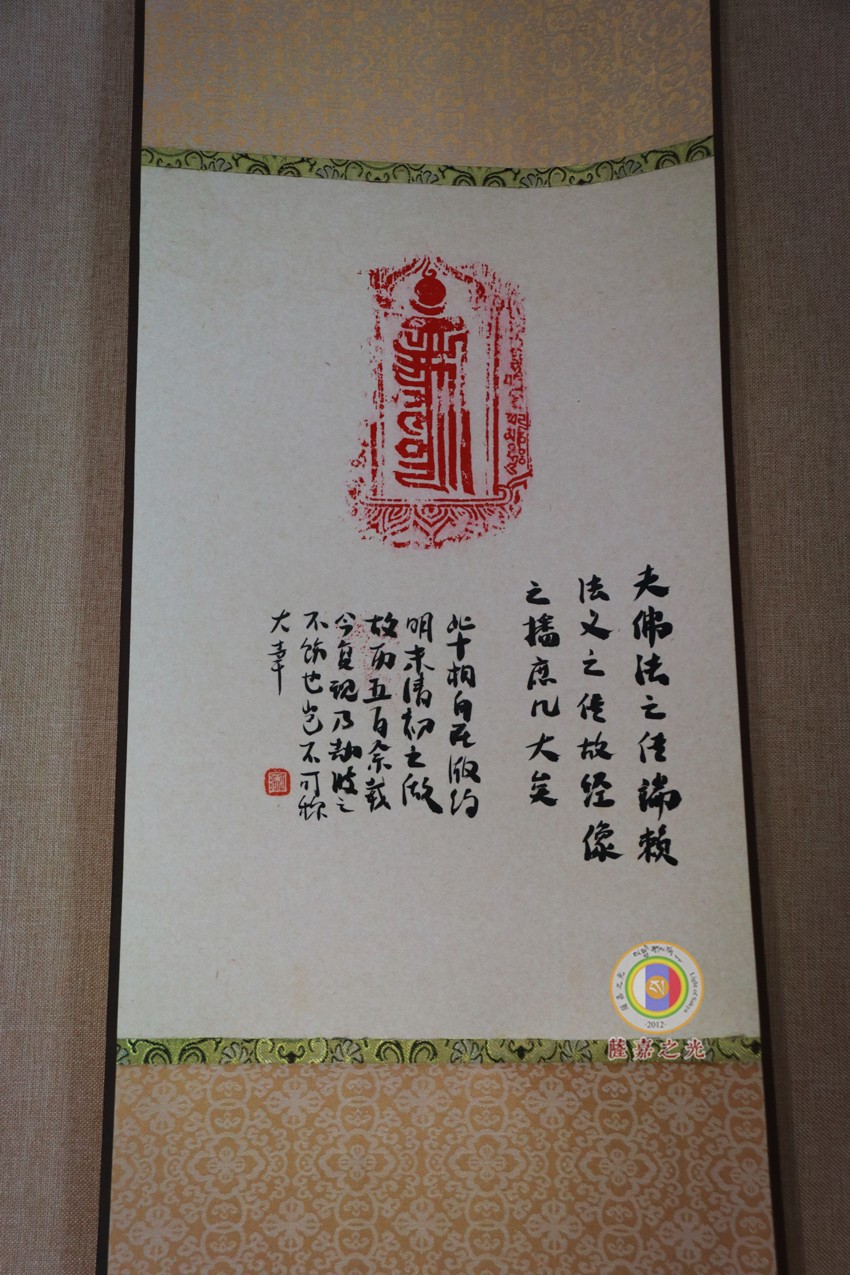 夫佛法之住端赖
法义之传故经像
之播庶几大矣
此十相自在版约
明末清初之做
故而五百余载
今复现乃劫波之
不饰也岂不可称
大幸
萨嘉之光
Light of Sakya
·2012·
薩嘉之光